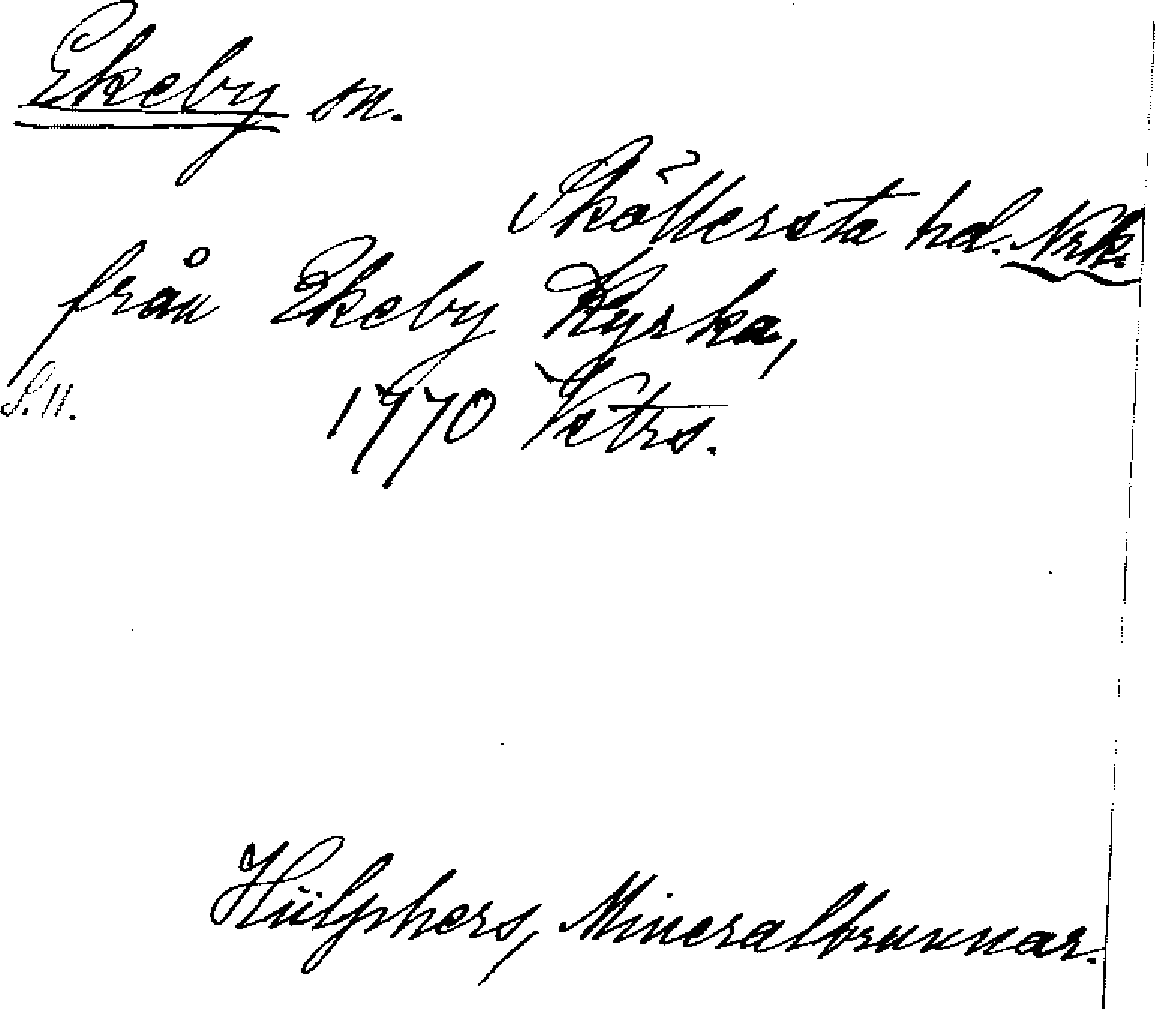 Ekeby sn.
Sköllersta hd. Nrk.
från Ekeby Kyrka,
S. 11.
1770 Vetrs.
Hülphers, Mineralbrunnar.